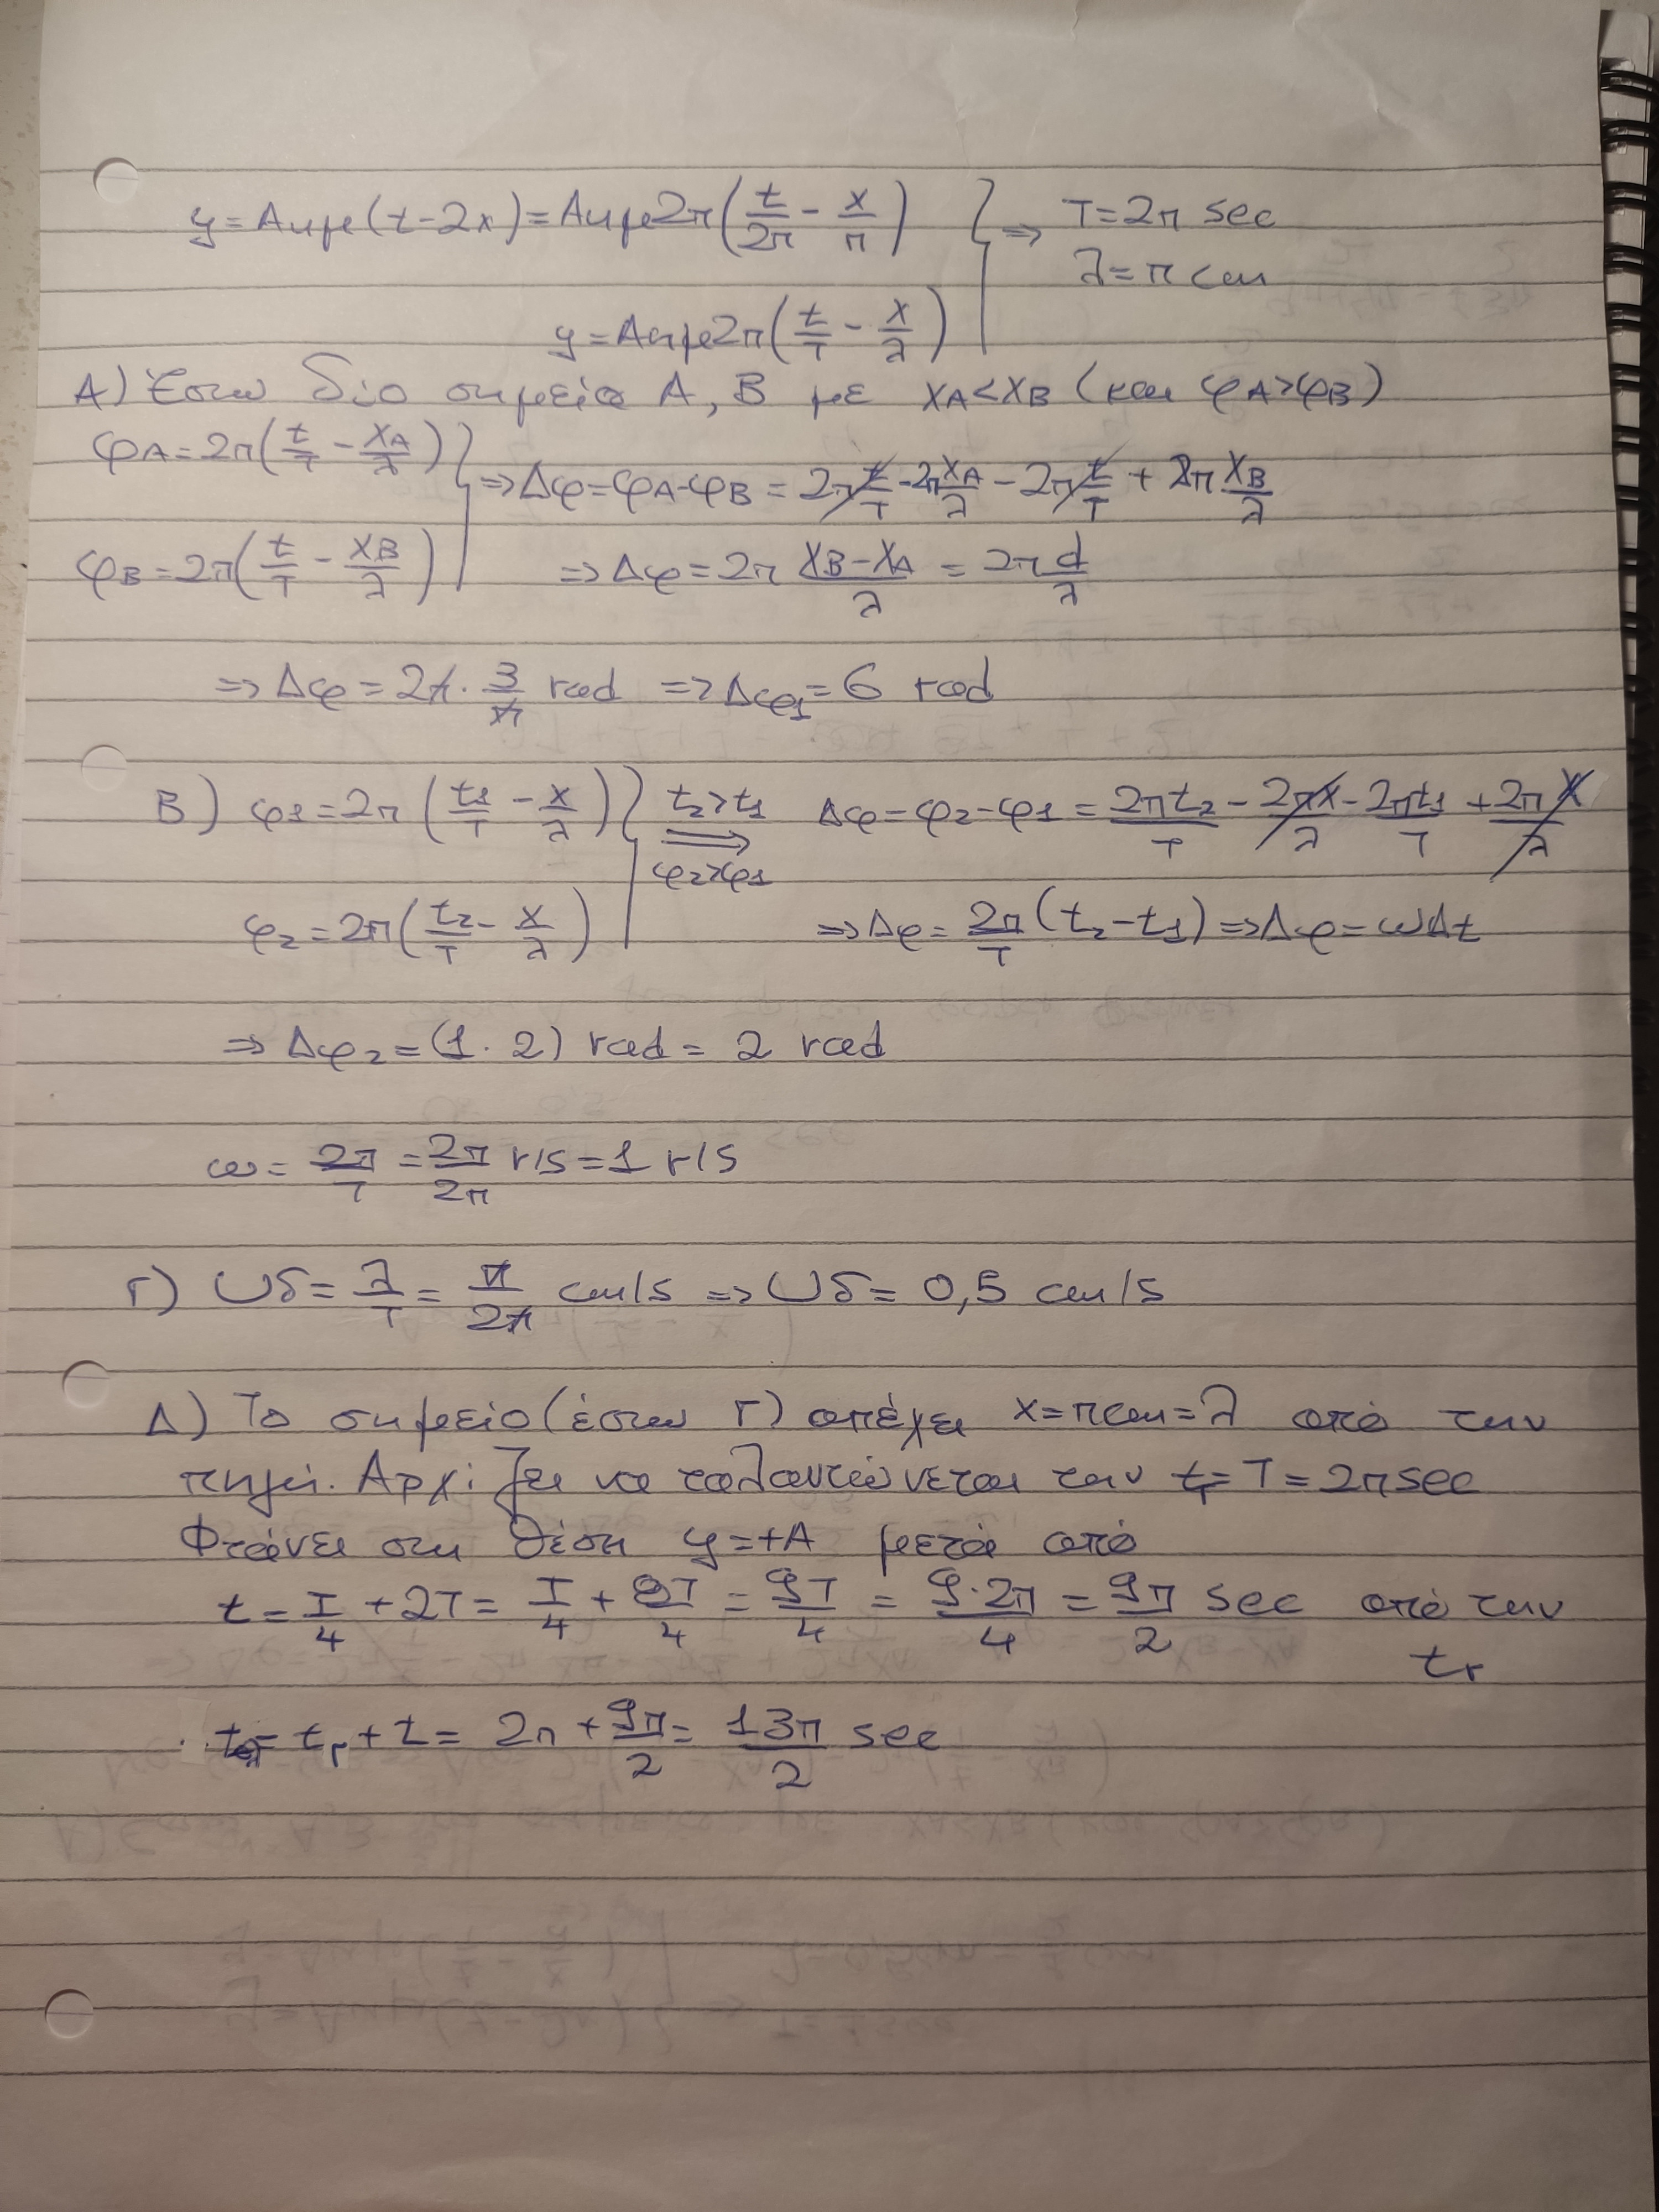 y = Αημ(t-2x) = Αημ2π(t/2π - x/π) } ⇒ T = 2π sec
λ = π cm
y = Αημ2π(t/T - x/λ)
Α) Έστω δύο σημεία Α, Β με xA<xB (και φA>φB)
φA = 2π(t/T - xA/λ) } ⇒ Δφ = φA-φB = 2πt/T - 2πxA/λ - 2πt/T + 2πxB/λ
φB = 2π(t/T - xB/λ) ⇒ Δφ = 2π (xB-xA)/λ = 2π d/λ
⇒ Δφ = 2π · 3/π rad ⇒ Δφ1 = 6 rad
Β) φ1 = 2π (t1/T - x/λ) } t2>t1 ⇒ φ2>φ1 Δφ = φ2-φ1 = 2πt2/T - 2πx/λ - 2πt1/T + 2πx/λ
φ2 = 2π(t2/T - x/λ) ⇒ Δφ = 2π/T (t2-t1) ⇒ Δφ = ωΔt
⇒ Δφ2 = (1 · 2) rad = 2 rad
ω = 2π/T = 2π/2π r/s = 1 r/s
Γ) υδ = λ/T = π/2π cm/s ⇒ υδ = 0,5 cm/s
Δ) Το σημείο (έστω Γ) απέχει x = π cm = λ από την
πηγή. Αρχίζει να ταλαντώνεται την tΓ = T = 2π sec
Φτάνει στη θέση y = +A μετά από
t = T/4 + 2T = T/4 + 8T/4 = 9T/4 = 9·2π/4 = 9π/2 sec από την
tΓ
= tΓ + t = 2π + 9π/2 = 13π/2 sec